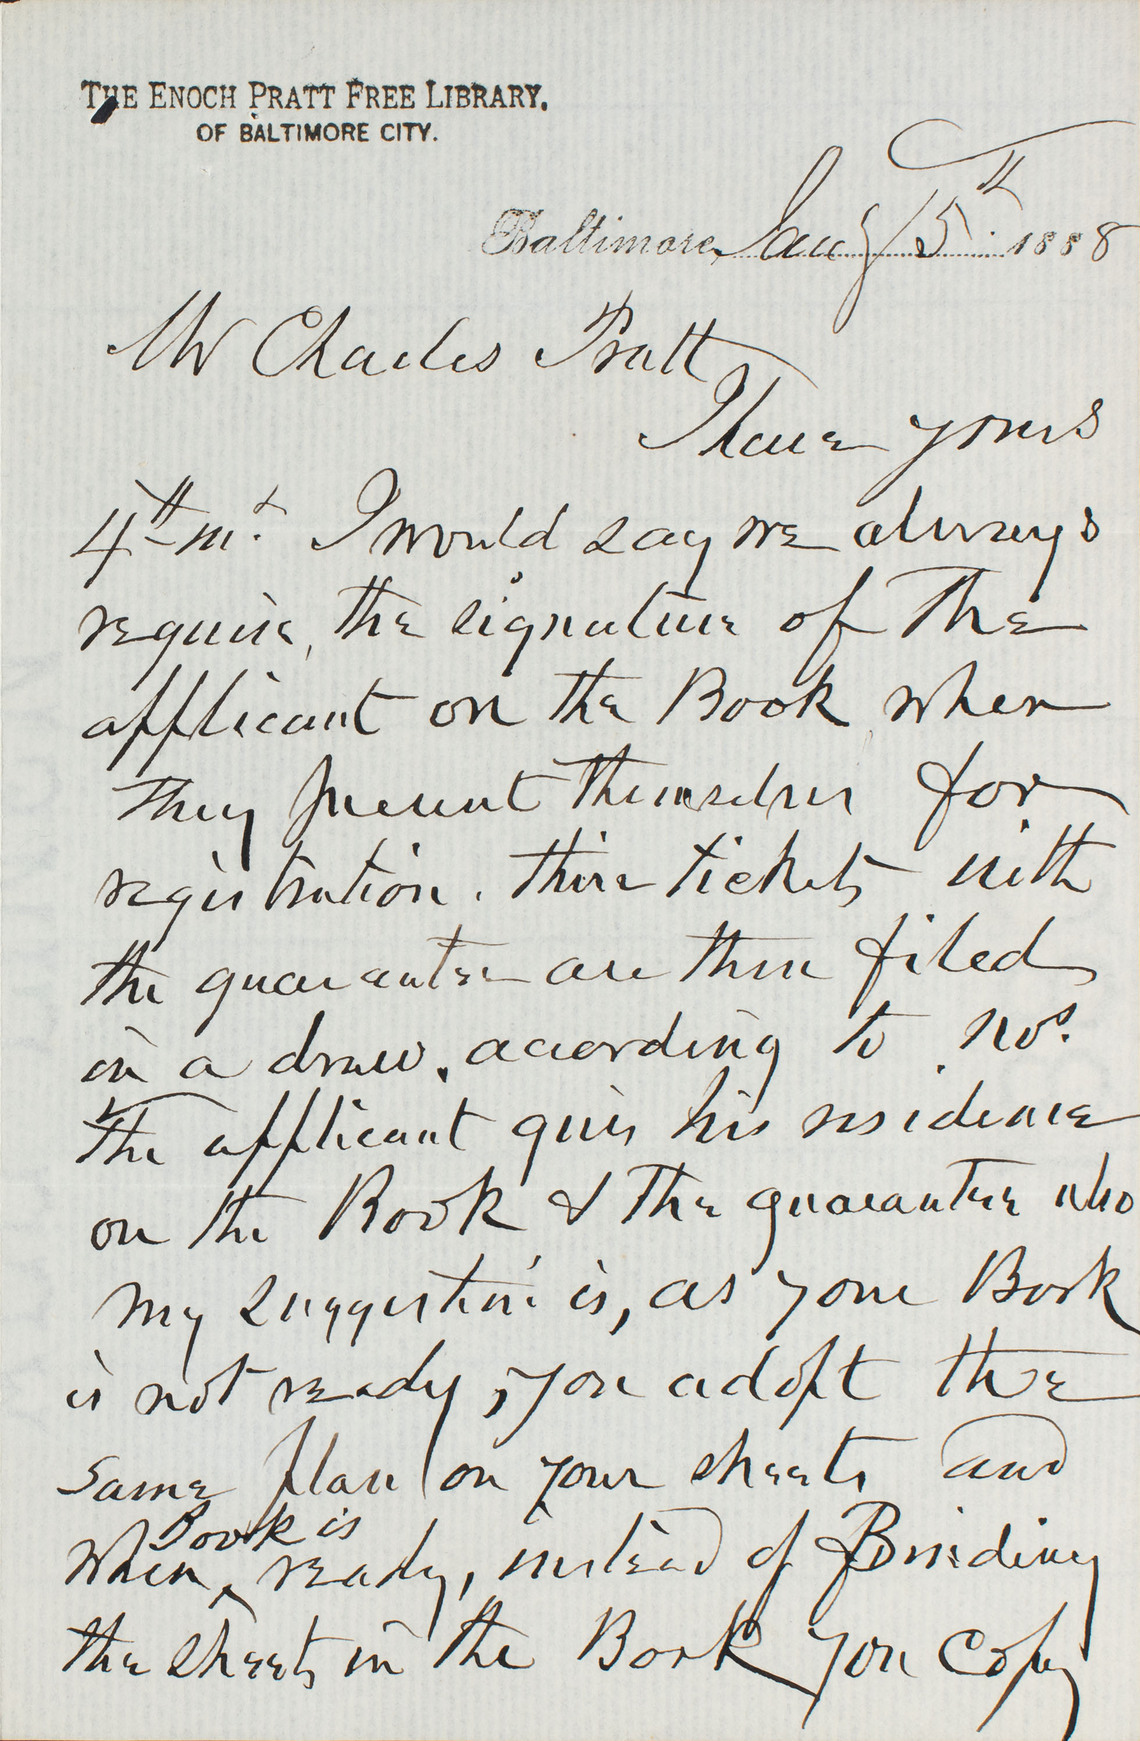 THE ENOCH PRATT FREE LIBRARY.
OF BALTIMORE CITY.
Baltimore, Jany 5th 1888
Mr Charles Pratt
I have yours
4th int. I would say we always
require, the signature of the
applicant on the Book when
they present themselves for
registration. their tickets with
the guarantee are then filed
in a draw. according to nos.
The applicant gives his residence
on the Book & the guarantee who
my suggestion is, as your Book
is not ready, you adopt the
same plan on your sheets and
Book is
when ^ ready, instead of Binding
the sheets in the Book you Copy